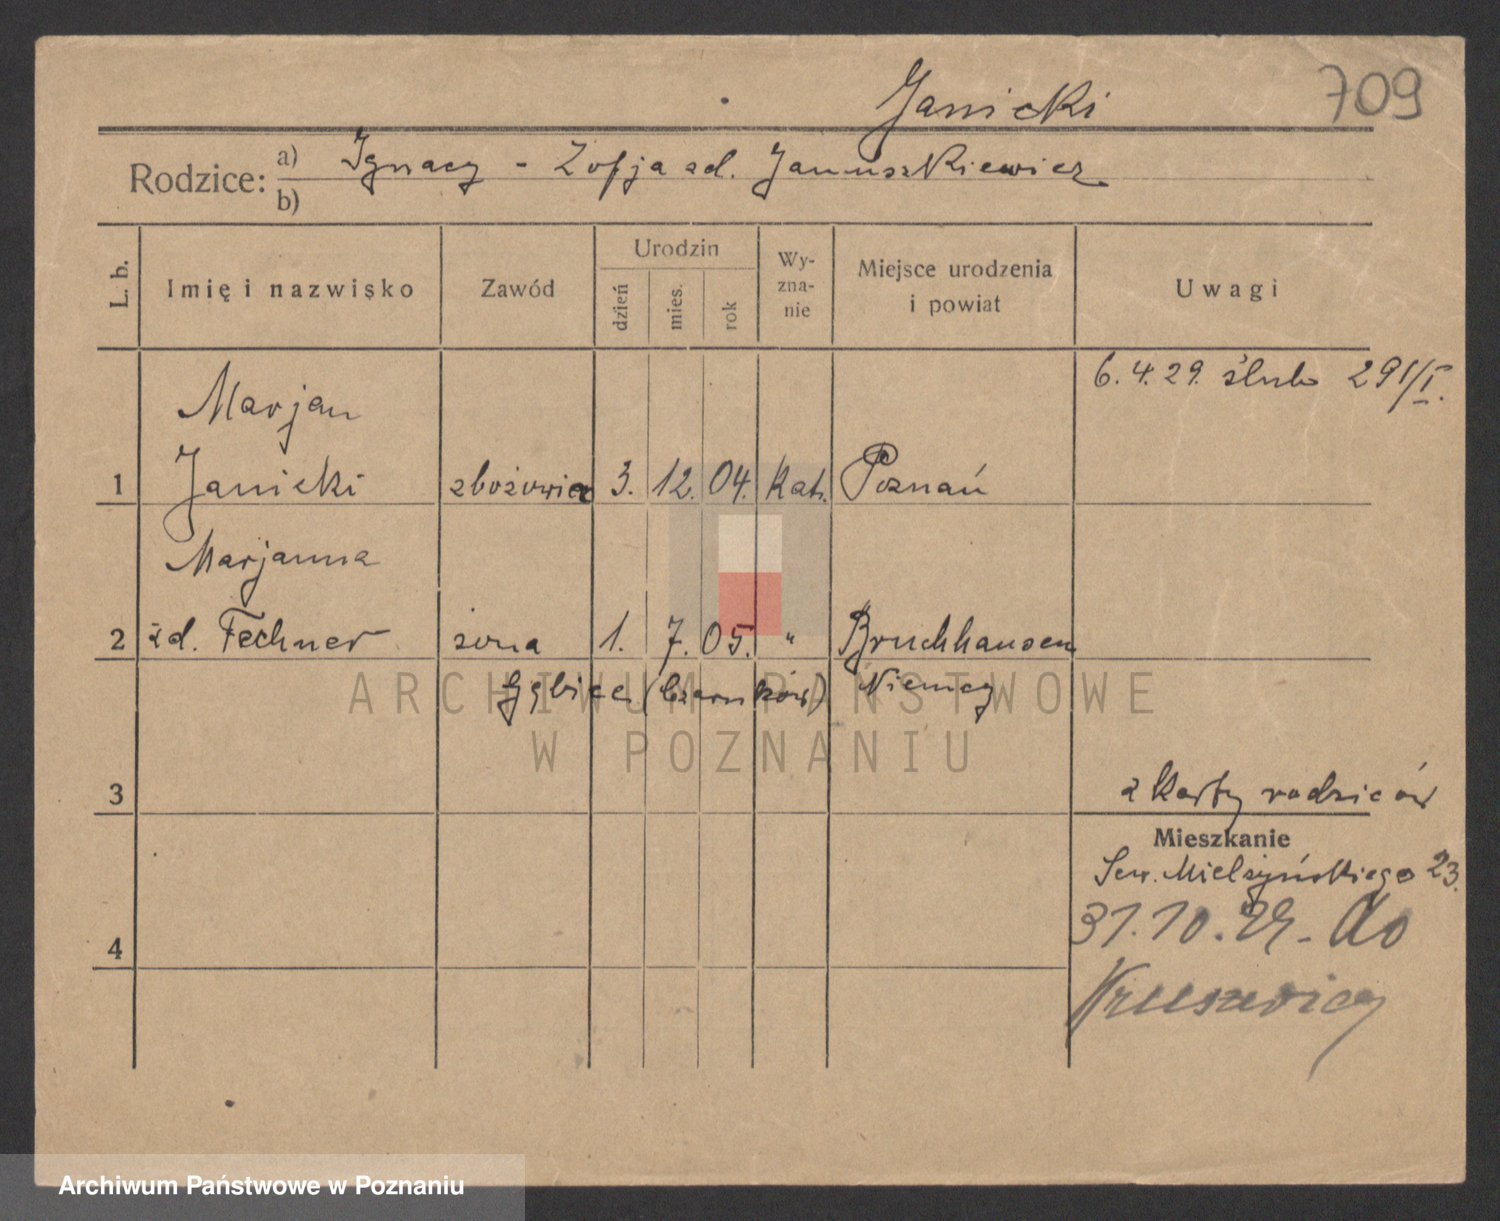 Janicki
709
Rodzice: a) Ignacy - Zofja zd. Januszkiewicz
b)
L. b.
Imię i nazwisko
Zawód
Urodzin
dzień
mies.
rok
Wy-
zna-
nie
Miejsce urodzenia
i powiat
Uwagi
6. 4. 29. ślub 291/I.
Marjan
1 Janicki zbożowiec 3. 12. 04. Kat. Poznań
Marjanna
2 zd. Fechner żona 1. 7. 05. " Bruchhausen
Gębice (Czarnków) Niemcy
ARCHIWUM PAŃSTWOWE
W POZNANIU
3
z karty rodziców
Mieszkanie
Sew. Mielżyńskiego 23.
31.10.29. do
Kruszwicy
4
Archiwum Państwowe w Poznaniu